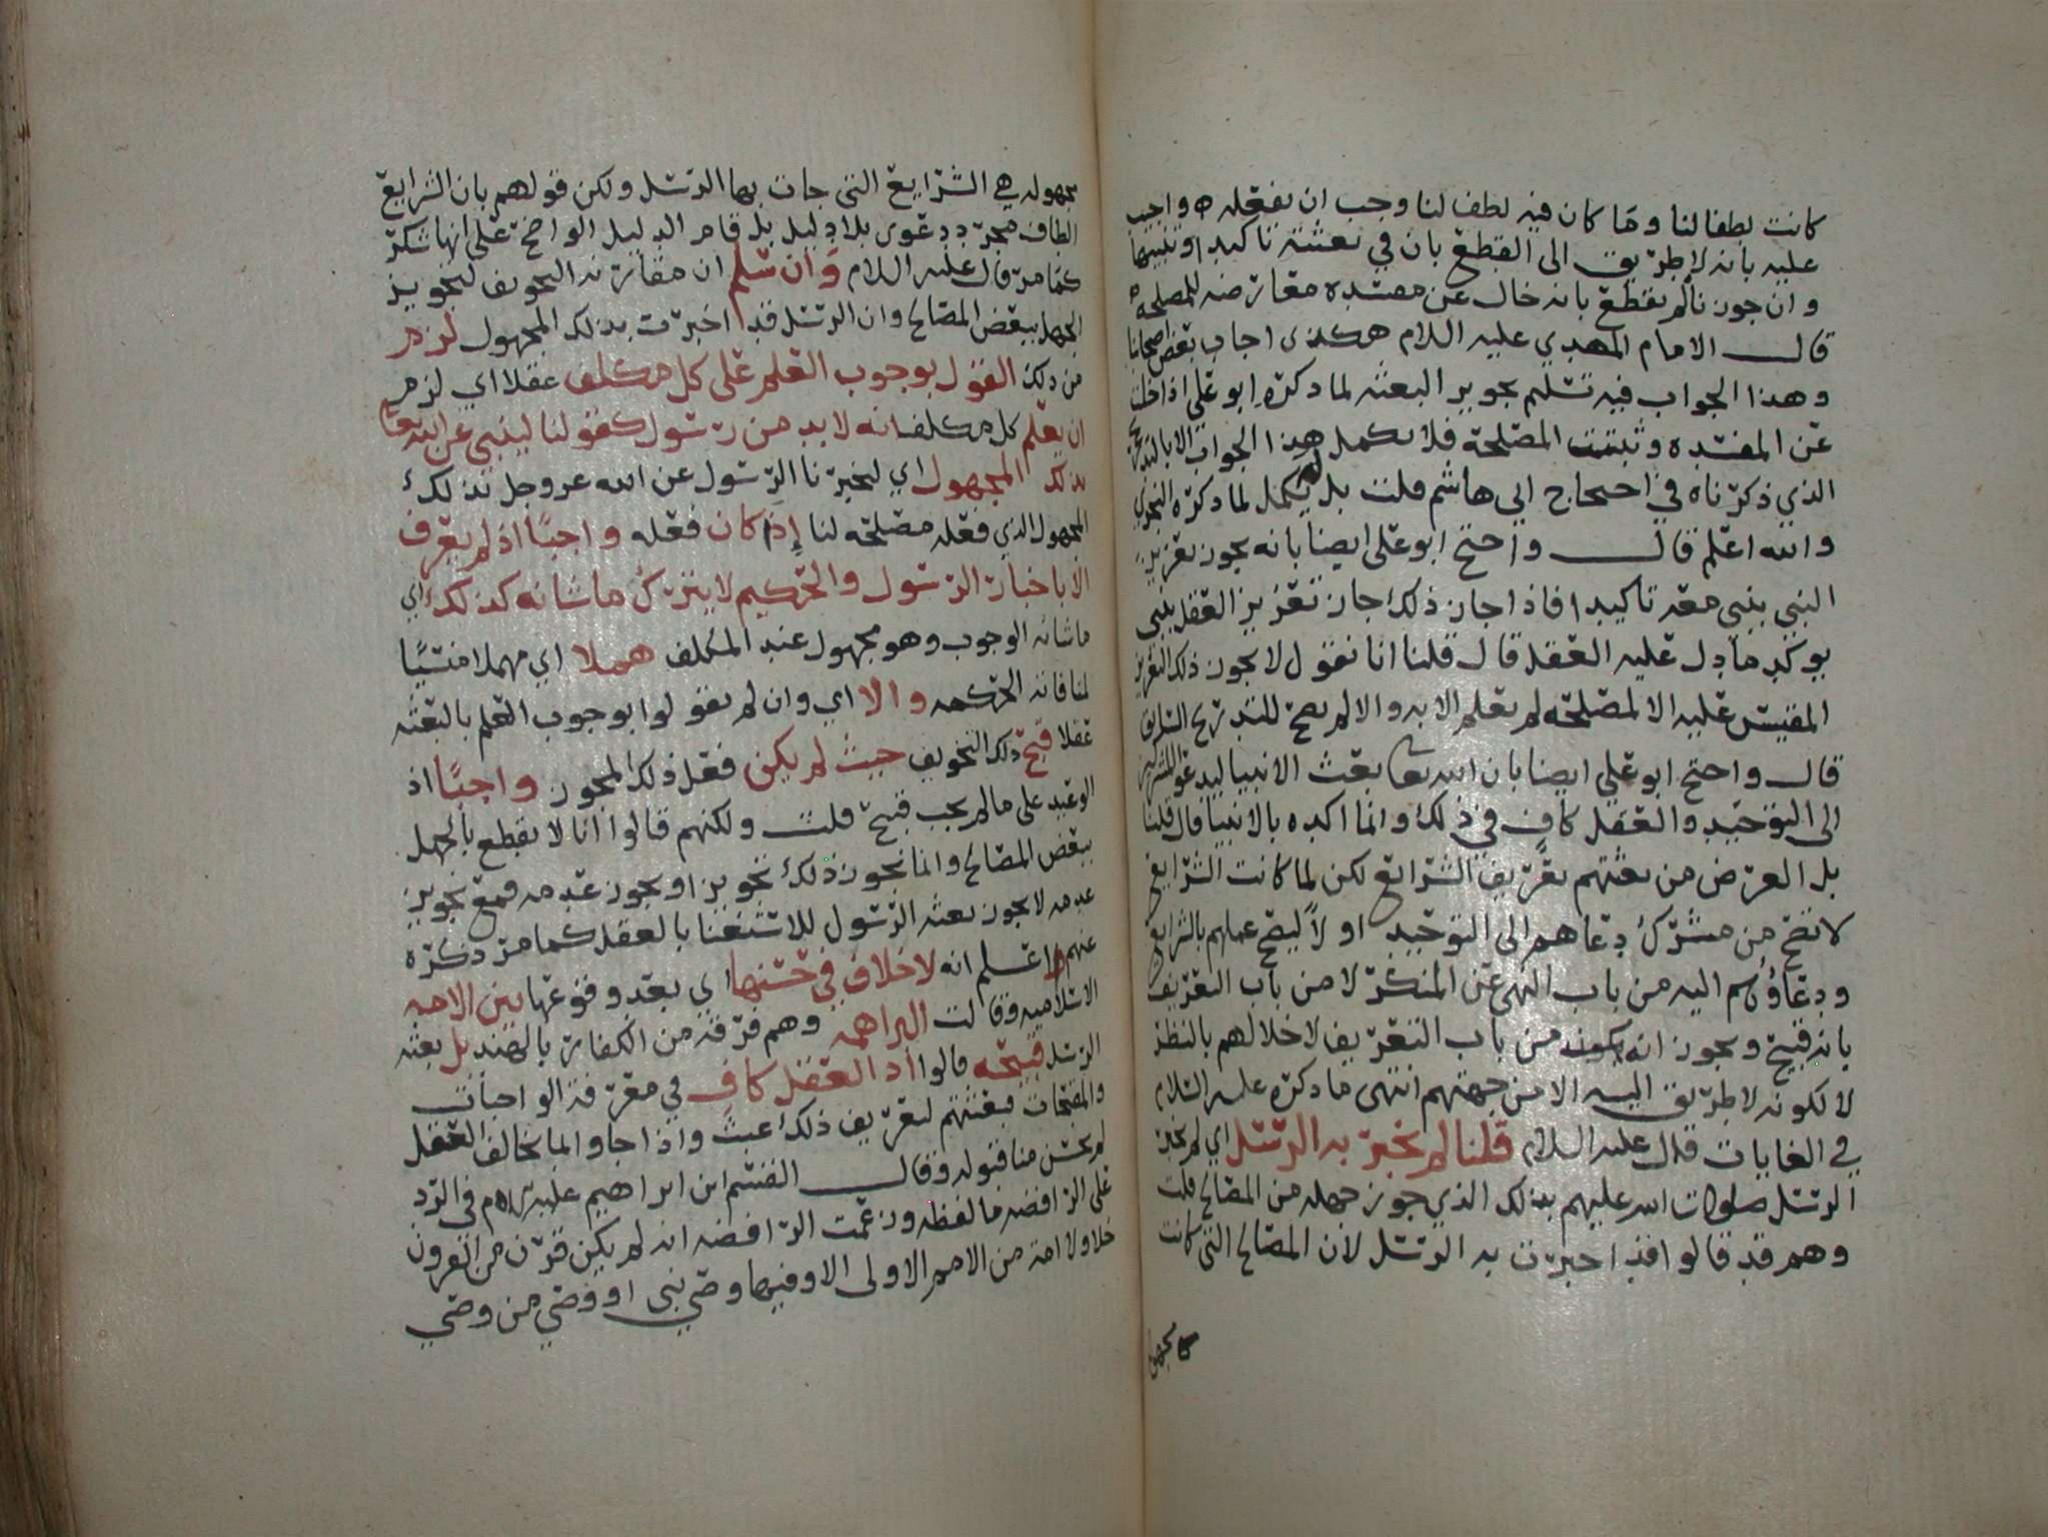 كانت لطفا لنا وما كان فيه لطف لنا وجب ان يفعله واجيب
عليه بانه لا طريق الى القطع بان في بعثته تاكيدا وتنبيها
وان جوزنا لم نقطع بانه خال عن مفسده معارضه للمصلحه
قال الامام المهدي عليه السلام هكذى اجاب بعض اصحابنا
وهذا الجواب فيه تسليم تجويز البعثه لما ذكره ابو علي اذا خلت
عن المفسده وثبتت المصلحة فلا يكمل هذا الجواب الا بالتدريج
الذي ذكرناه في احتجاج ابي هاشم قلت بل يكمل لما ذكره النجري
والله اعلم قال واحتج ابو على ايضا بانه يجوز تعزيز
النبي بنبي معه تاكيدا فاذا جاز ذلك جاز تعزيز العقل بنبي
يوكد ما دل عليه العقل قال قلنا انا نقول لا يجوز ذلك التعزيز
المقيس عليه الا لمصلحة لم يعلم الا به والا لم يصح للتدريج السابق
قال واحتج ابو علي ايضا بان الله تعا بعث الانبيا ليدعوا المشركين
الى التوحيد والعقل كافٍ في ذلك وانما اكده بالانبيا قال قلنا
بل الغرض من بعثتهم تعريف الشرايع لكن لما كانت الشرايع
لا تصح من مشرك دعاهم الى التوحيد اولاً ليصح عملهم بالشرايع
ودعاؤهم اليه من باب النهي عن المنكر لا من باب التعريف
بانه قبيح ويجوز انه يكون من باب التعريف لاخلالهم بالنظر
لا لكونه لا طريق اليه الا من جهتهم انتهى ما ذكره عليه السلام
في الغايات قال عليه السلام قلنا لم تخبر به الرسل اي لم تخبر
الرسل صلوات الله عليهم بذلك الذي جوز جهله من المصالح قلت
وهم قد قالوا قد اخبرت به الرسل لان المصالح التي كانت
مجهوله هي الشرايع التى جات بها الرسل ولكن قولهم بان الشرايع
الطاف مجرد دعوى بلا دليل بل قام الدليل الواضح على انها شكر
كما مر قال عليه السلام وان سلم ان مقارنه التخويف لتجويز
الجهل ببعض المصالح وان الرسل قد اخبرت بذلك المجهول لزم
من ذلك القول بوجوب العلم على كل مكلف عقلا اي لزم
ان يعلم كل مكلف انه لا بد من رسول كقولنا لينبي عن الله تعا
بذلك المجهول اي ليخبرنا الرسول عن الله عز وجل بذلك
المجهول الذي فعله مصلحه لنا إذا كان فعله واجبًا اذ لم يعرف
الا باخبار الرسول والحكيم لا يترك ما شانه كذلك اي
ما شانه الوجوب وهو مجهول عند المكلف هملا اي مهملا منسيًا
لمنافاته الحكمه والا اي وان لم يقولوا بوجوب العلم بالبعثه
عقلا قبح ذلك التخويف حيث لم يكن فعل ذلك المجوز واجبًا اذ
الوعيد على ما لم يجب قبيح قلت ولكنهم قالوا انا لا نقطع بالجهل
ببعض المصالح وانما نجوز ذلك تجويزا ويجوز عدمه فمع تجويز
عدمه لا يجوز بعثه الرسول للاستغنا بالعقل كما مر ذكره
عنهم واعلم انه لا خلاف في حسنها اي بعد وقوعها بين الامه
الاسلاميه وقالت البراهمه وهم فرقه من الكفار بالهند بل بعثه
الرسل قبيحه قالوا اذ العقل كافٍ في معرفة الواجبات
والمقبحات فبعثتهم لتعريف ذلك عبث واذا جاوا بما يخالف العقل
لم يحسن منا قبوله وقال القسم ابن ابراهيم عليه السلام في الرد
على الرافضه ما لفظه وزعمت الرافضه انه لم يكن قرن من القرون
خلا ولا امة من الامم الاولى الا وفيها وصي نبي او وصي من وصي